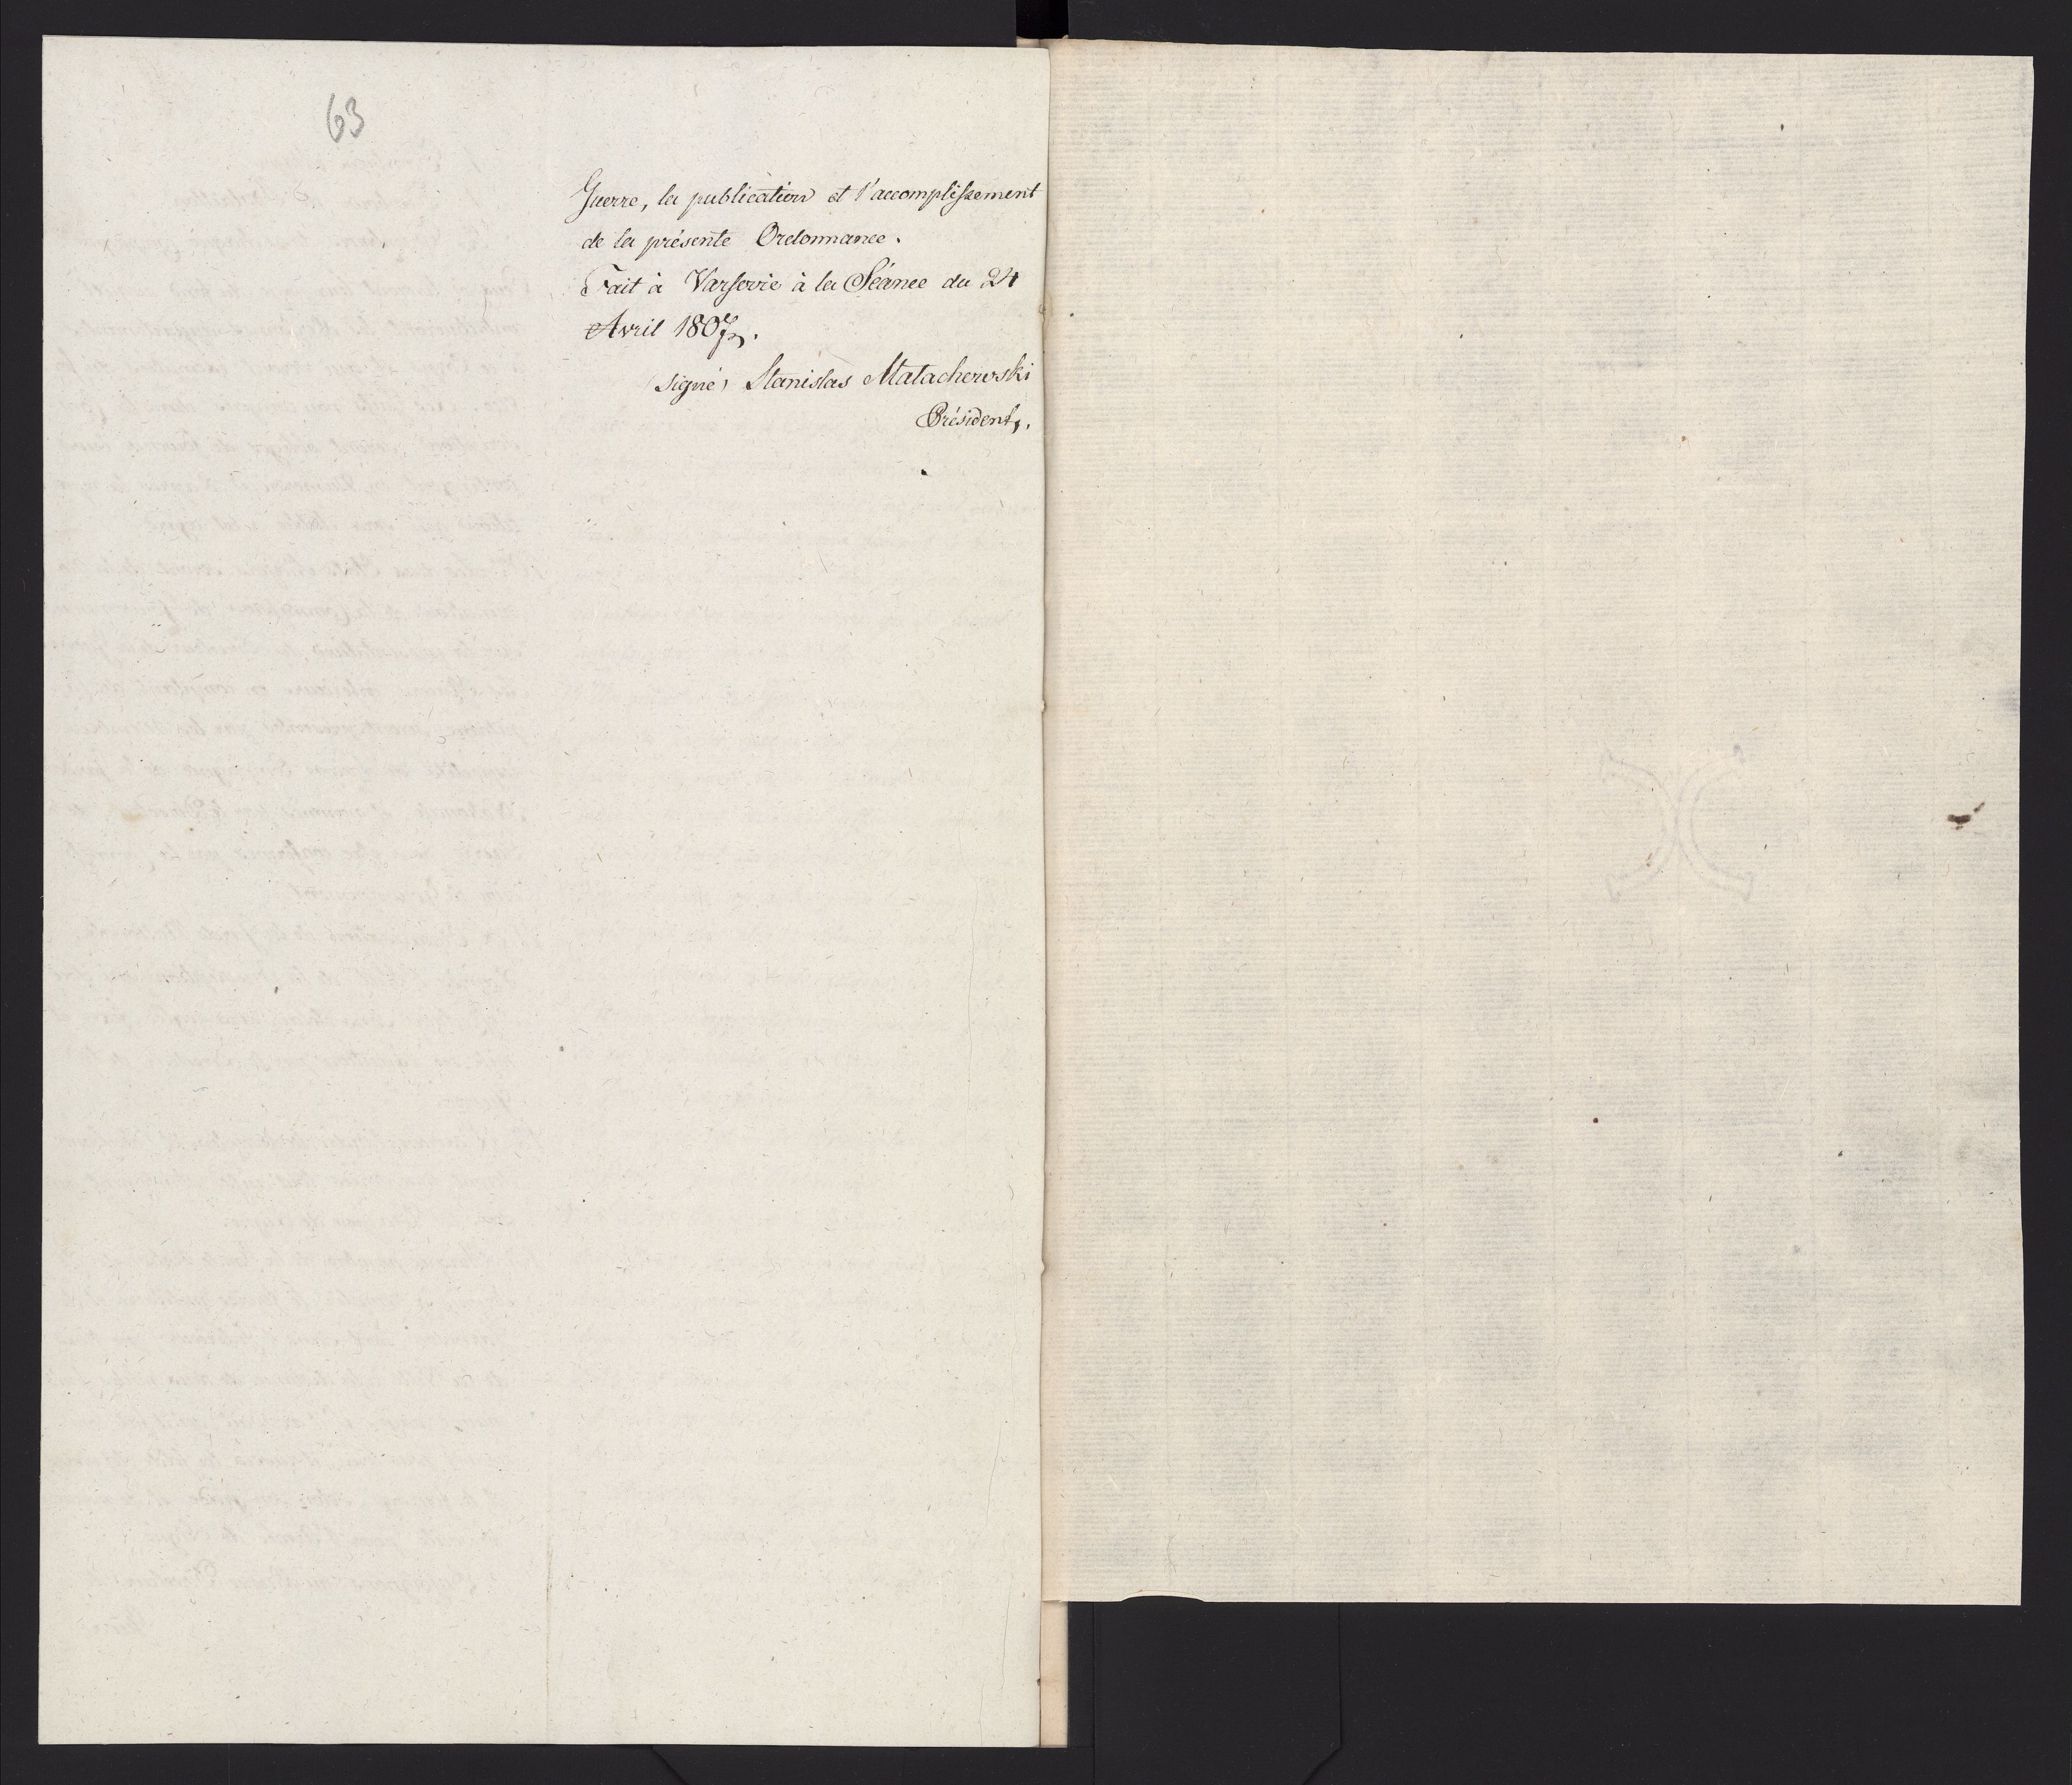 63
Guerre, la publication et l'accomplissement
de la présente Ordonnance.
Fait à Varsovie à la Séance du 24
Avril 1807.
(signé) Stanislas Malachowski
Président.